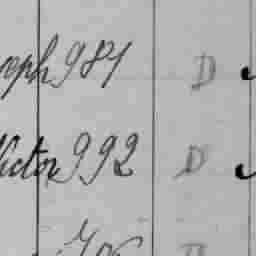 oph 981 D
Victor 992 D